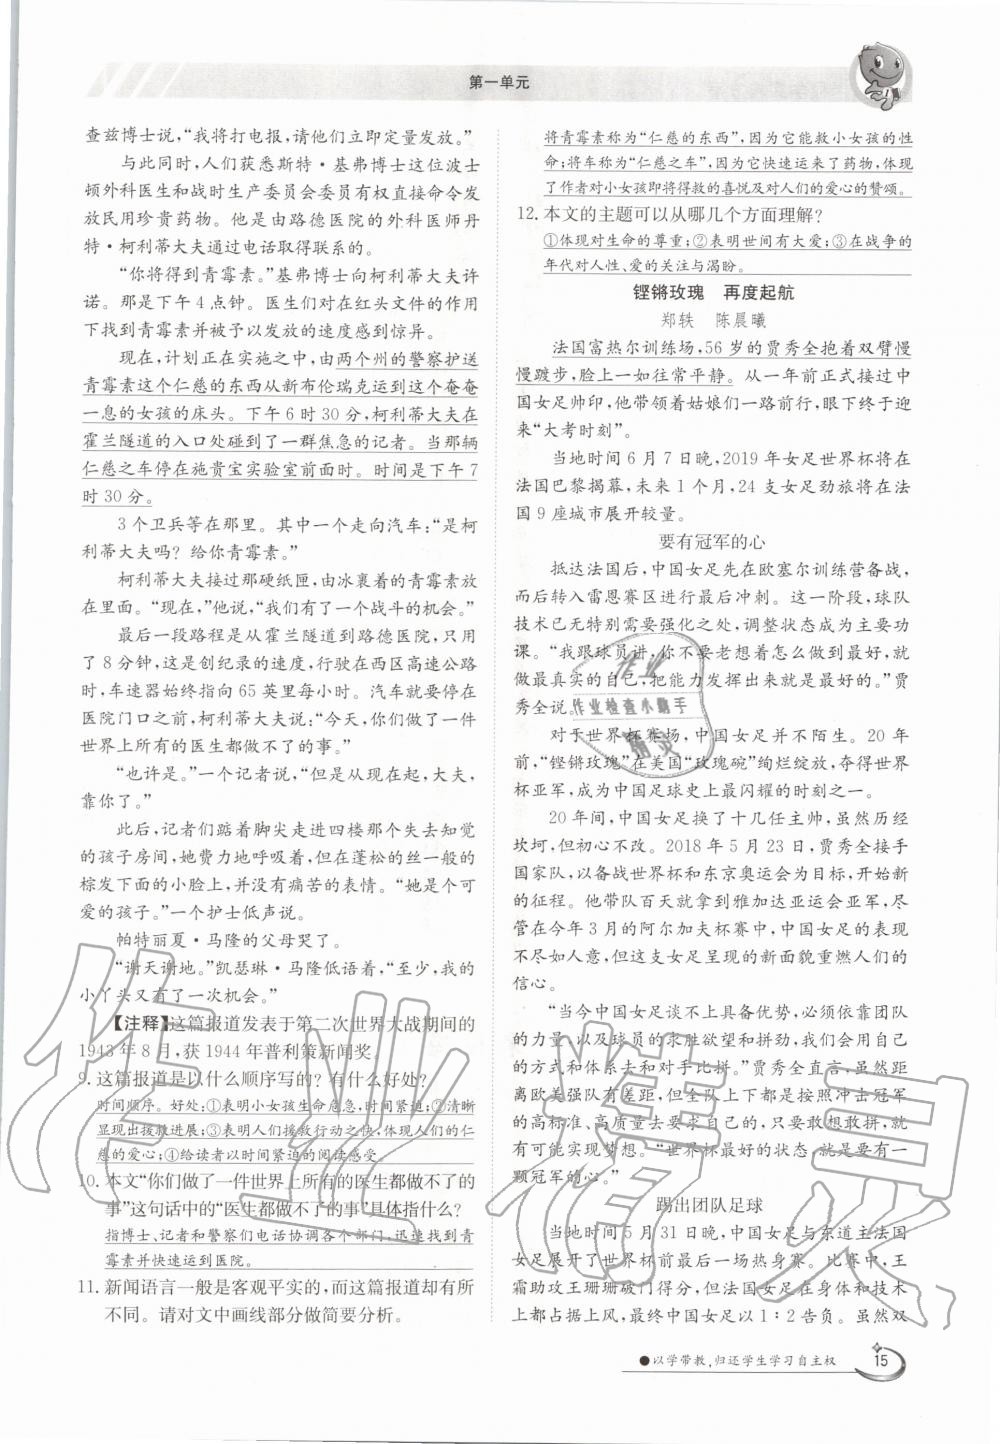 第一单元
查兹博士说，“我将打电报，请他们立即定量发放。”
与此同时，人们获悉斯特·基弗博士这位波士
顿外科医生和战时生产委员会委员有权直接命令发
放民用珍贵药物。他是由路德医院的外科医师丹
特·柯利蒂大夫通过电话取得联系的。
“你将得到青霉素。”基弗博士向柯利蒂大夫许
诺。那是下午4点钟。医生们对在红头文件的作用
下找到青霉素并被予以发放的速度感到惊异。
现在，计划正在实施之中，由两个州的警察护送
青霉素这个仁慈的东西从新布伦瑞克运到这个奄奄
一息的女孩的床头。下午6时30分，柯利蒂大夫在
霍兰隧道的入口处碰到了一群焦急的记者。当那辆
仁慈之车停在施贵宝实验室前面时。时间是下午7
时30分。
3个卫兵等在那里。其中一个走向汽车：“是柯
利蒂大夫吗？给你青霉素。”
柯利蒂大夫接过那硬纸匣，由冰裹着的青霉素放
在里面。“现在，”他说，“我们有了一个战斗的机会。”
最后一段路程是从霍兰隧道到路德医院，只用
了8分钟，这是创纪录的速度，行驶在西区高速公路
时，车速器始终指向65英里每小时。汽车就要停在
医院门口之前，柯利蒂大夫说：“今天，你们做了一件
世界上所有的医生都做不了的事。”
“也许是。”一个记者说，“但是从现在起，大夫，
靠你了。”
此后，记者们踮着脚尖走进四楼那个失去知觉
的孩子房间，她费力地呼吸着，但在蓬松的丝一般的
棕发下面的小脸上，并没有痛苦的表情。“她是个可
爱的孩子。”一个护士低声说。
帕特丽夏·马隆的父母哭了。
“谢天谢地。”凯瑟琳·马隆低语着，“至少，我的
小丫头又有了一次机会。”
【注释】这篇报道发表于第二次世界大战期间的
1943年8月，获1944年普利策新闻奖。
9. 这篇报道是以什么顺序写的？有什么好处？
时间顺序。好处：①表明小女孩生命危急，时间紧迫；②清晰
显现出拔救进展；③表明人们援救行动之快，体现人们的仁
慈的爱心；④给读者以时间紧迫的阅读感受。
10. 本文“你们做了一件世界上所有的医生都做不了的
事”这句话中的“医生都做不了的事”具体指什么？
指博士、记者和警察们电话协调各个部门，迅速找到青
霉素并快速运到医院。
11. 新闻语言一般是客观平实的，而这篇报道却有所
不同。请对文中画线部分做简要分析。
将青霉素称为“仁慈的东西”，因为它能救小女孩的性
命；将车称为“仁慈之车”，因为它快速运来了药物，体现
了作者对小女孩即将得救的喜悦及对人们的爱心的赞颂。
12. 本文的主题可以从哪几个方面理解？
①体现对生命的尊重；②表明世间有大爱；③在战争的
年代对人性、爱的关注与渴盼。
铿锵玫瑰 再度起航
郑轶 陈晨曦
法国富热尔训练场，56岁的贾秀全抱着双臂慢
慢踱步，脸上一如往常平静。从一年前正式接过中
国女足帅印，他带领着姑娘们一路前行，眼下终于迎
来“大考时刻”。
当地时间6月7日晚，2019年女足世界杯将在
法国巴黎揭幕，未来1个月，24支女足劲旅将在法
国9座城市展开较量。
要有冠军的心
抵达法国后，中国女足先在欧塞尔训练营备战，
而后转入雷恩赛区进行最后冲刺。这一阶段，球队
技术已无特别需要强化之处，调整状态成为主要功
课。“我跟球员讲，你不要老想着怎么做到最好，就
做最真实的自己，把能力发挥出来就是最好的。”贾
秀全说。
对于世界杯赛场，中国女足并不陌生。20年
前，“铿锵玫瑰”在美国“玫瑰碗”绚烂绽放，夺得世界
杯亚军，成为中国足球史上最闪耀的时刻之一。
20年间，中国女足换了十几任主帅，虽然历经
坎坷，但初心不改。2018年5月23日，贾秀全接手
国家队，以备战世界杯和东京奥运会为目标，开始新
的征程。他带队百天就拿到雅加达亚运会亚军，尽
管在今年3月的阿尔加夫杯赛中，中国女足的表现
不尽如人意，但这支女足呈现的新面貌重燃人们的
信心。
“当今中国女足谈不上具备优势，必须依靠团队
的力量，以及球员的求胜欲望和拼劲，我们会用自己
的方式和体系去和对手比拼。”贾秀全直言，虽然距
离欧美强队有差距，但全队上下都是按照冲击冠军
的高标准、高质量去要求自己的，只要敢想敢拼，就
有可能实现梦想。“世界杯最好的状态，就是要有一
颗冠军的心。”
踢出团队足球
当地时间5月31日晚，中国女足与东道主法国
女足展开了世界杯前最后一场热身赛。比赛中，王
霜助攻王珊珊破门得分，但法国女足在身体和技术
上都占据上风，最终中国女足以1∶2告负。虽然双
作业
作业检查小助手
精灵
作业精灵
●以学带教，归还学生学习自主权
15